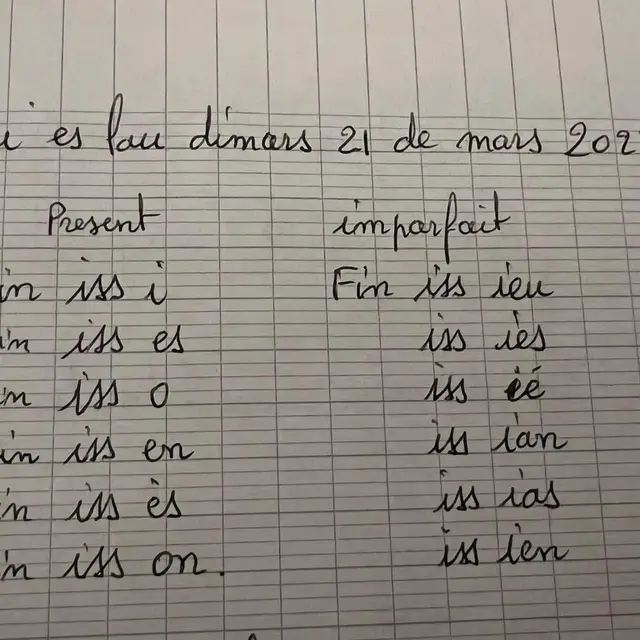 i es lou dimars 21 de mars 202
Present imparfait
in iss i Fin iss ieu
in iss es iss iès
in iss o iss ié
in iss en iss ian
in iss ès iss ias
in iss on. iss ien